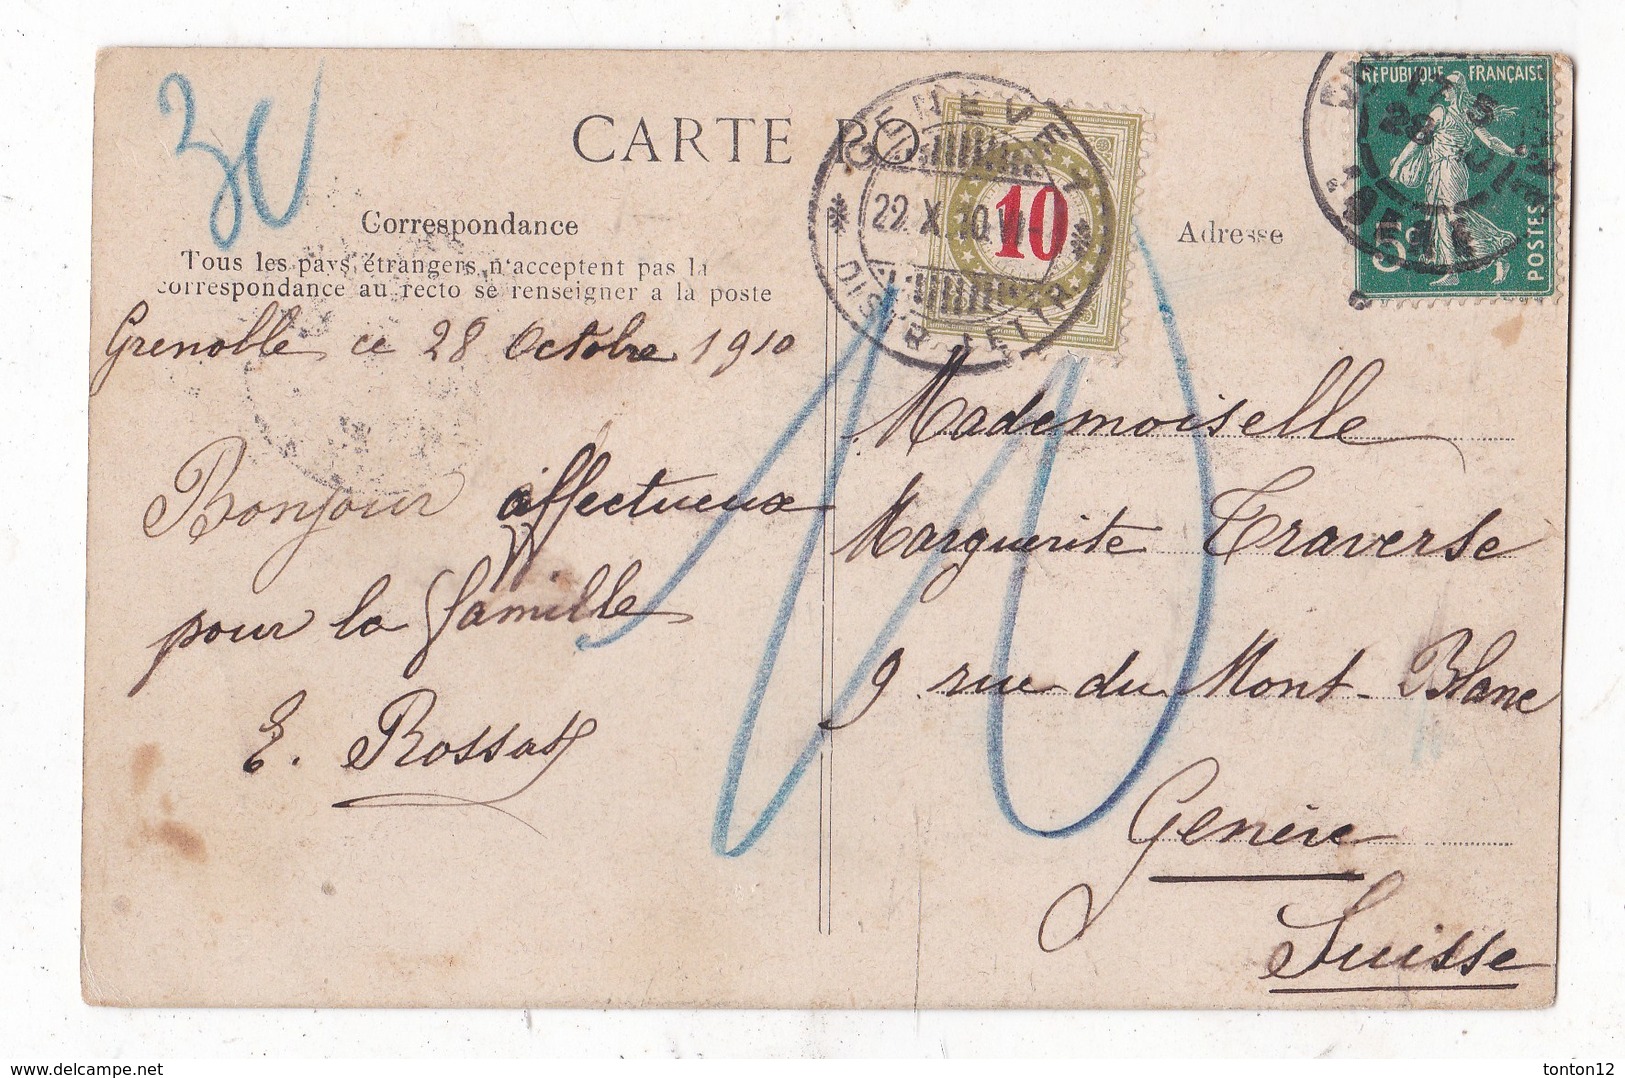 30
CARTE PO
GENEVE 1
22.X.10.VI-
DISTR. LETTR.
10
RÉPUBLIQUE FRANÇAISE
28
5c
POSTES
ISÈRE
Correspondance
Tous les pays étrangers n'acceptent pas la
correspondance au recto se renseigner a la poste
Adresse
Grenoble ce 28 Octobre 1910
Bonjour affectueux
pour la famille
E. Rossat
10
Mademoiselle
Marguerite Traverse
9 rue du Mont-Blanc
Genève
Suisse
tonton12